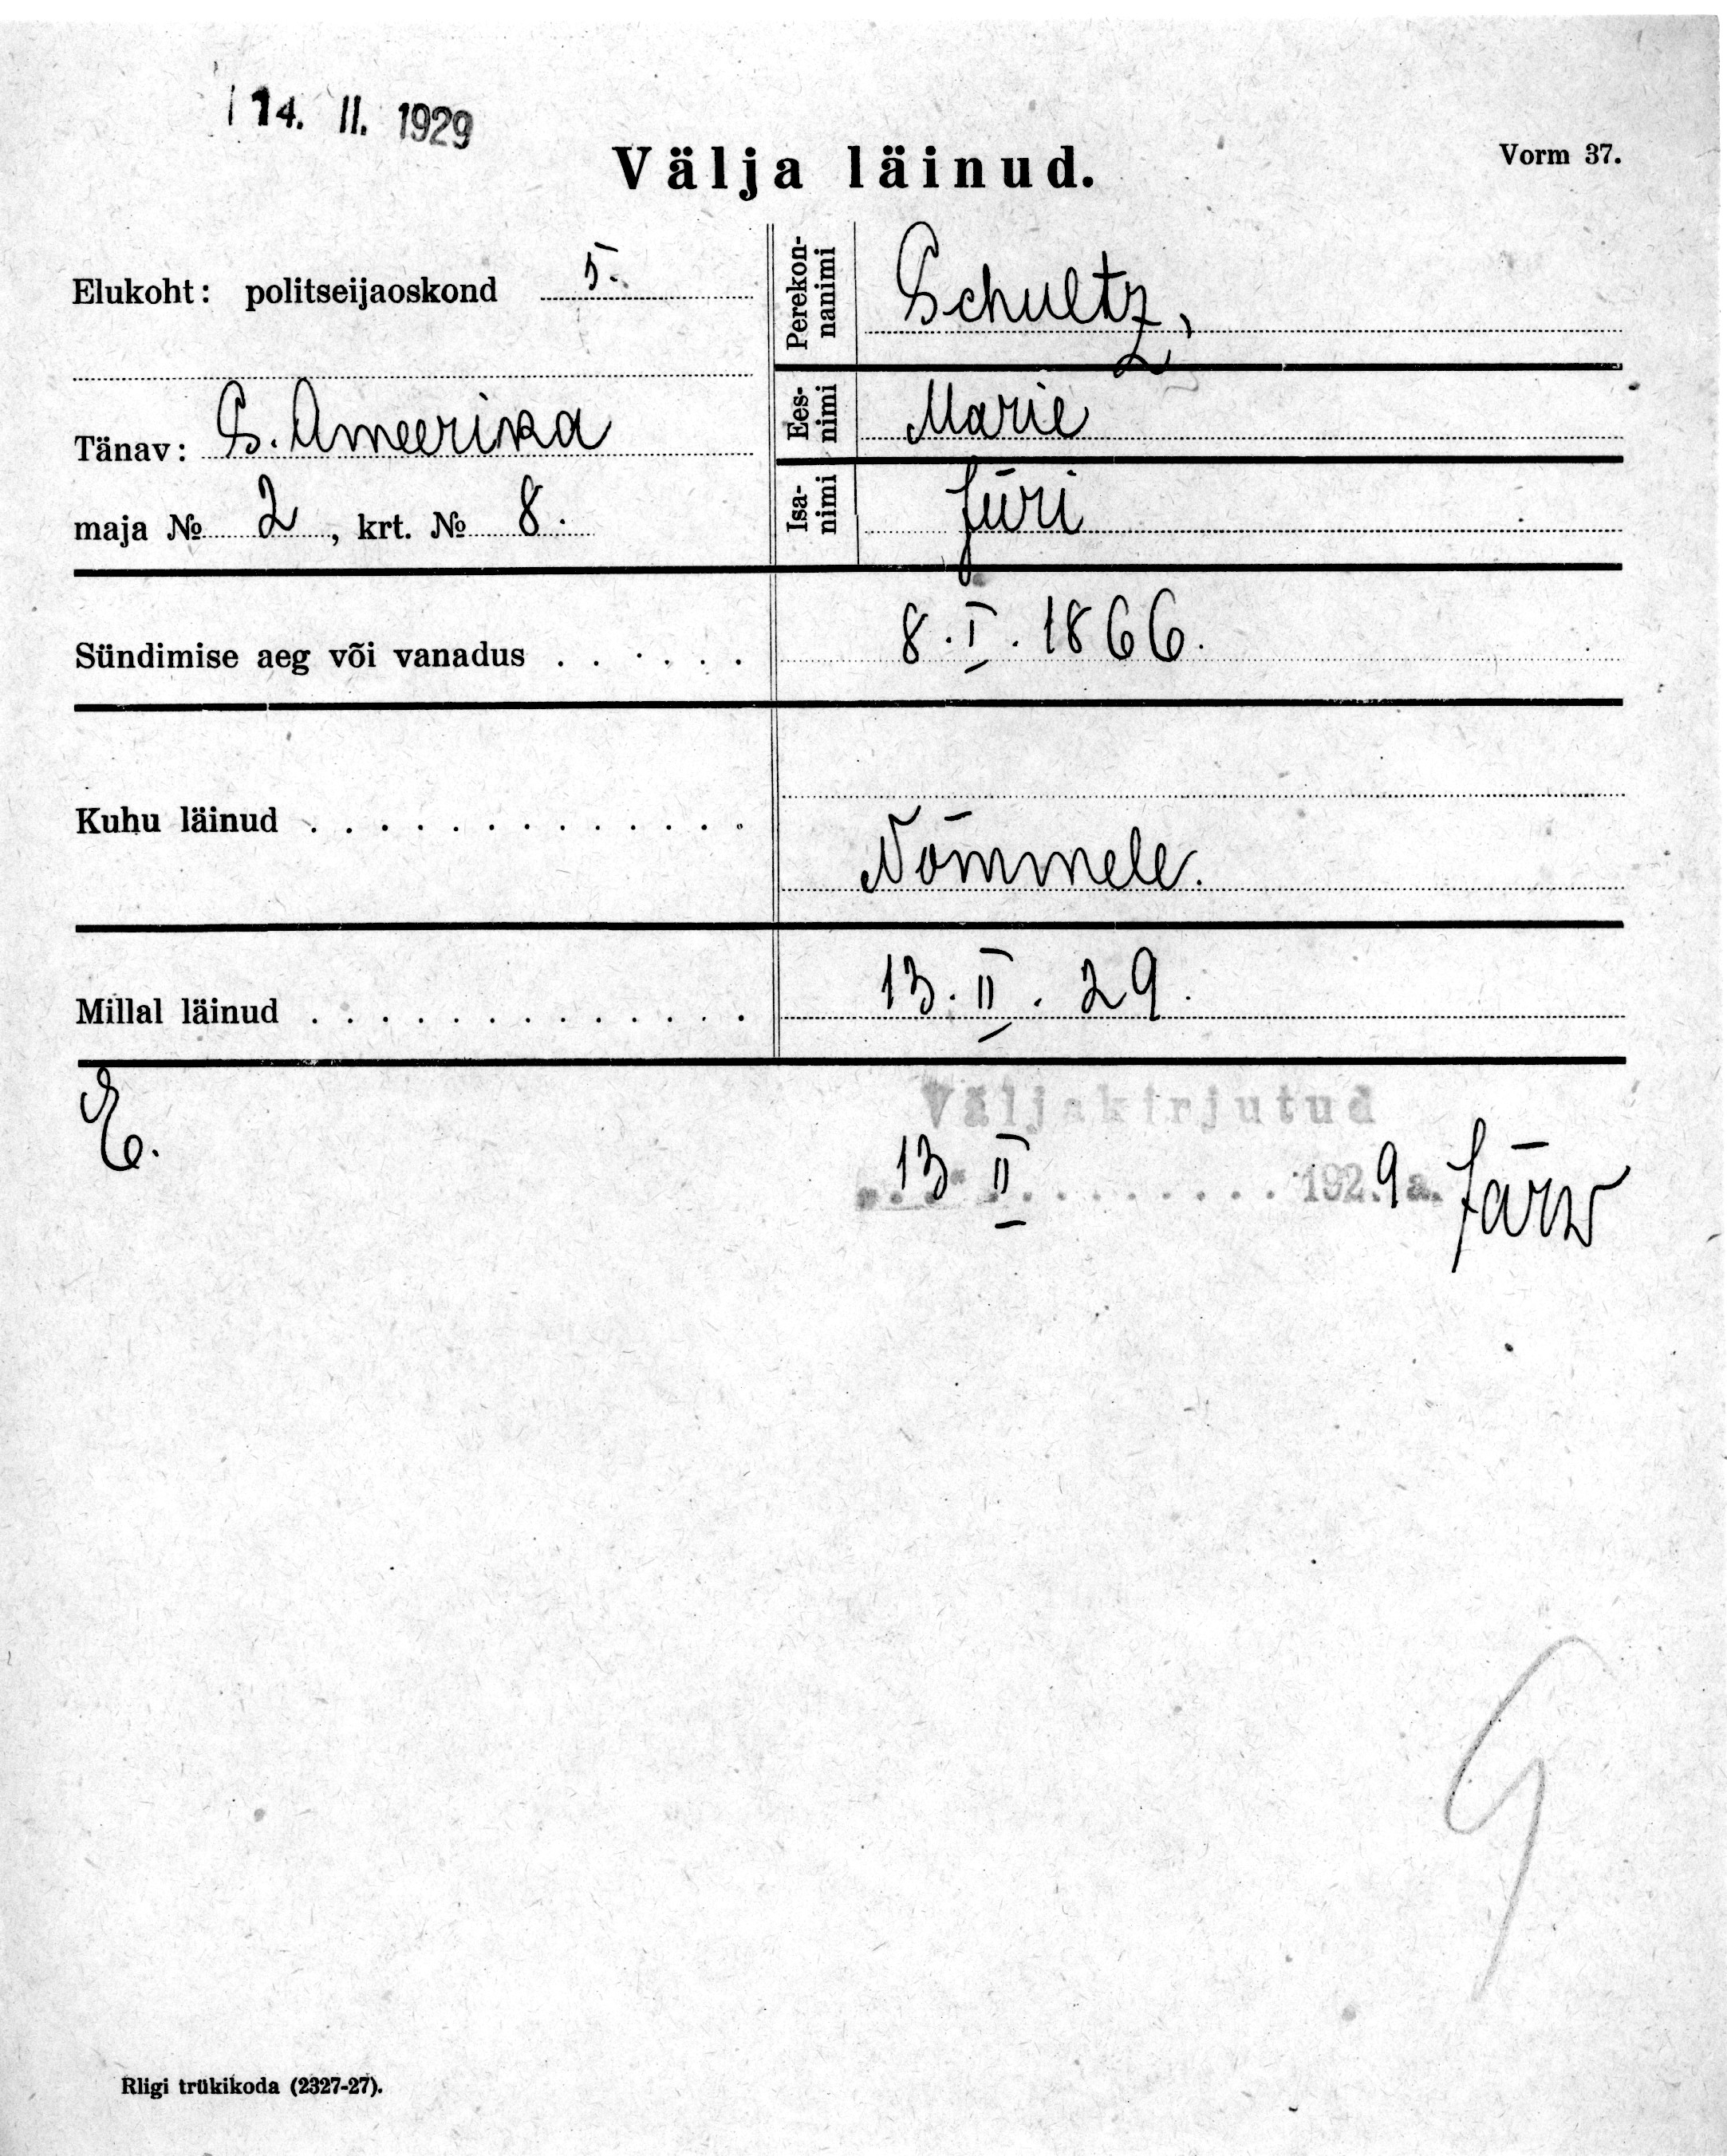 14. II. 1929
Välja läinud.
Vorm 37.
Elukoht: politseijaoskond 5.
Tänav: S. Ameerika
maja № 2, krt. № 8.
Perekon-
nanimi
Schultz,
Ees-
nimi
Marie
Isa-
nimi
Jüri
Sündimise aeg või vanadus . . . . . .
8. I. 1866.
Kuhu läinud . . . . . . . . . . . . .
Nõmmele.
Millal läinud . . . . . . . . . . . . .
13. II. 29.
E.
Väljakirjutud
13 II . . . . . . . . . 1929 a. Järw
G
Riigi trükikoda (2327-27).